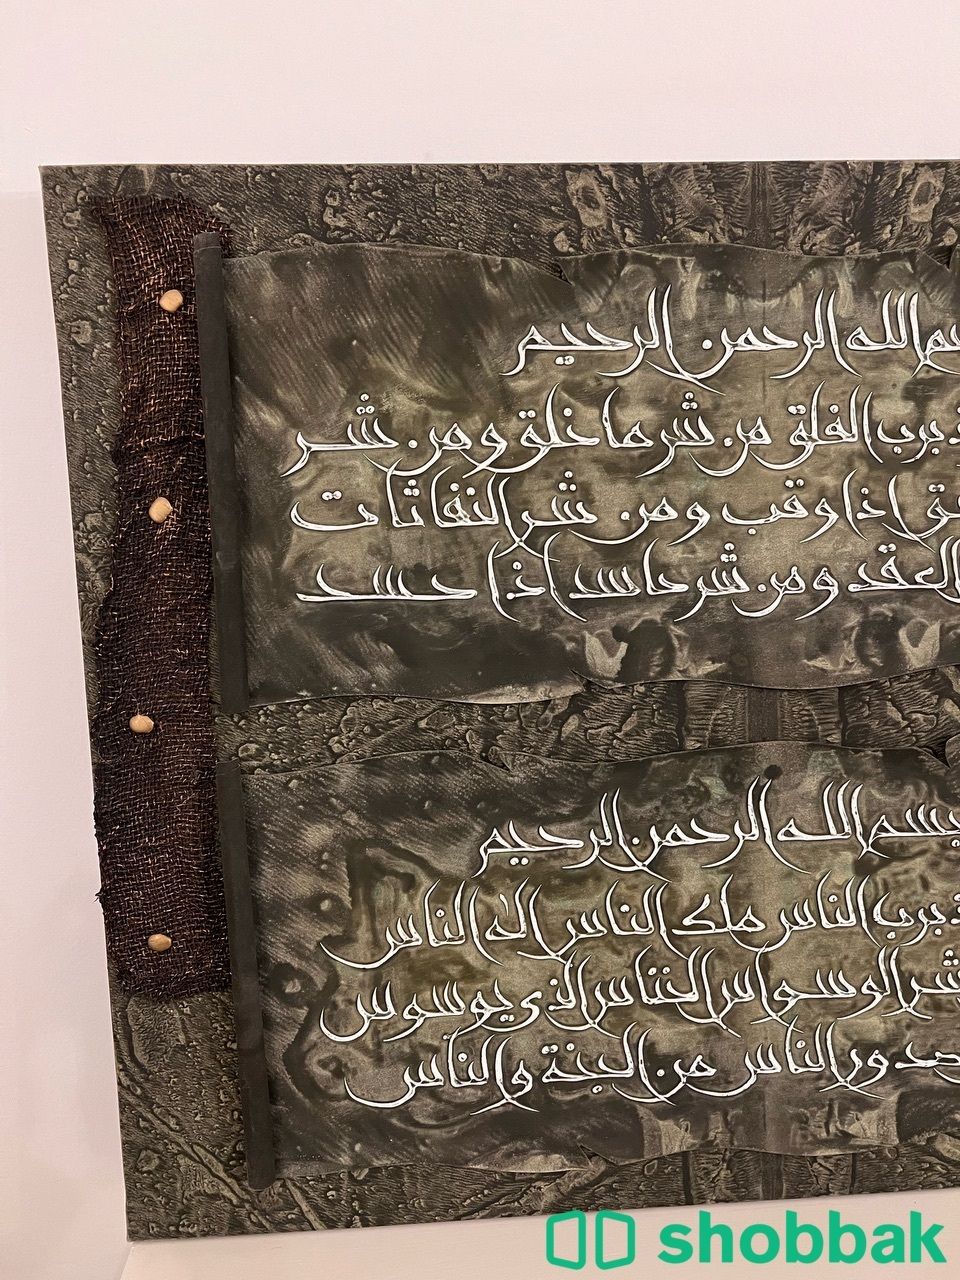 بسم الله الرحمن الرحيم
برب الفلق من شر ما خلق ومن شر
اذا وقب ومن شر النفاثات
العقد ومن شر حاسد اذا حسد
بسم الله الرحمن الرحيم
برب الناس ملك الناس اله الناس
شر الوسواس الخناس الذي يوسوس
صدور الناس من الجنة والناس
shobbak